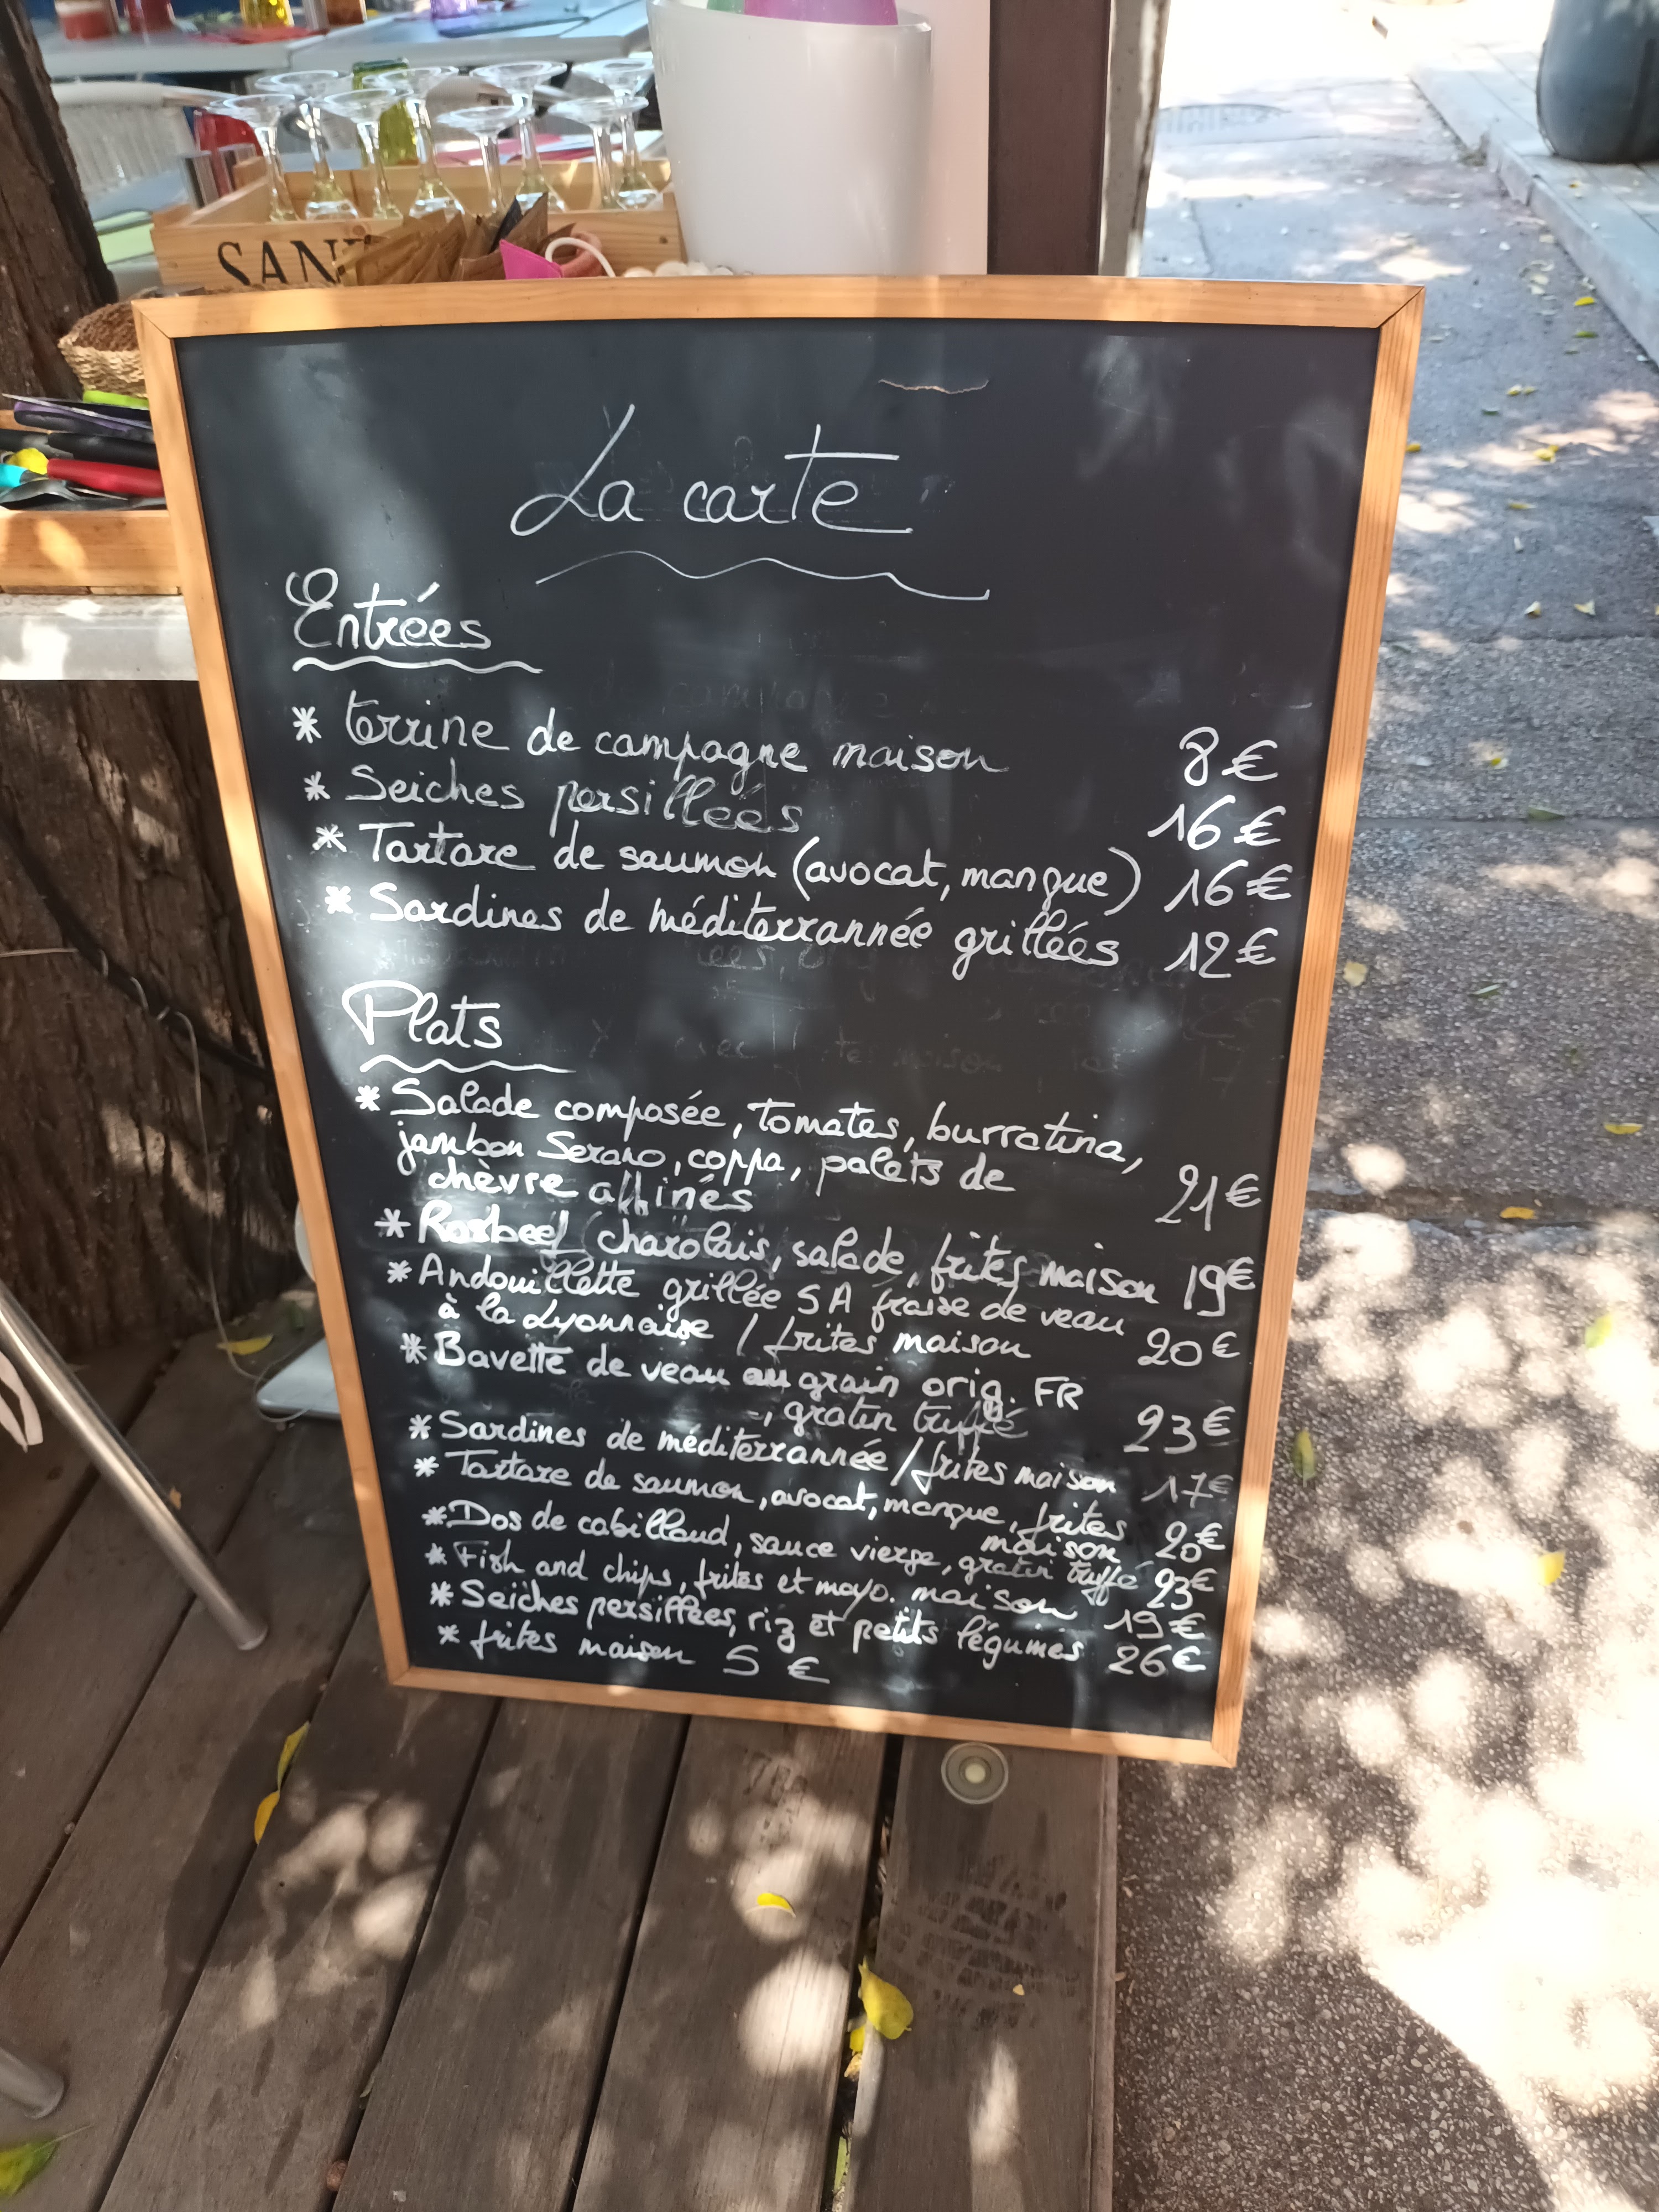 SAN
La carte
Entrées
* terrine de campagne maison 8€
* Seiches persillées 16€
* Tartare de saumon (avocat, mangue) 16€
* Sardines de méditerrannée grillées 12€
Plats
* Salade composée, tomates, burratina,
jambon Serano, coppa, palets de
chèvre affinés 21€
* Rosbeef charolais, salade, frites maison 19€
* Andouillette grillée 5A fraise de veau
à la Lyonnaise / frites maison 20€
* Bavette de veau au grain orig. FR
, gratin truffé 23€
* Sardines de méditerrannée / frites maison 17€
* Tartare de saumon, avocat, mangue, frites
maison 20€
* Dos de cabillaud, sauce vierge, gratin truffé 23€
* Fish and chips, frites et mayo. maison 19€
* Seiches persillées, riz et petits légumes 26€
* frites maison 5 €